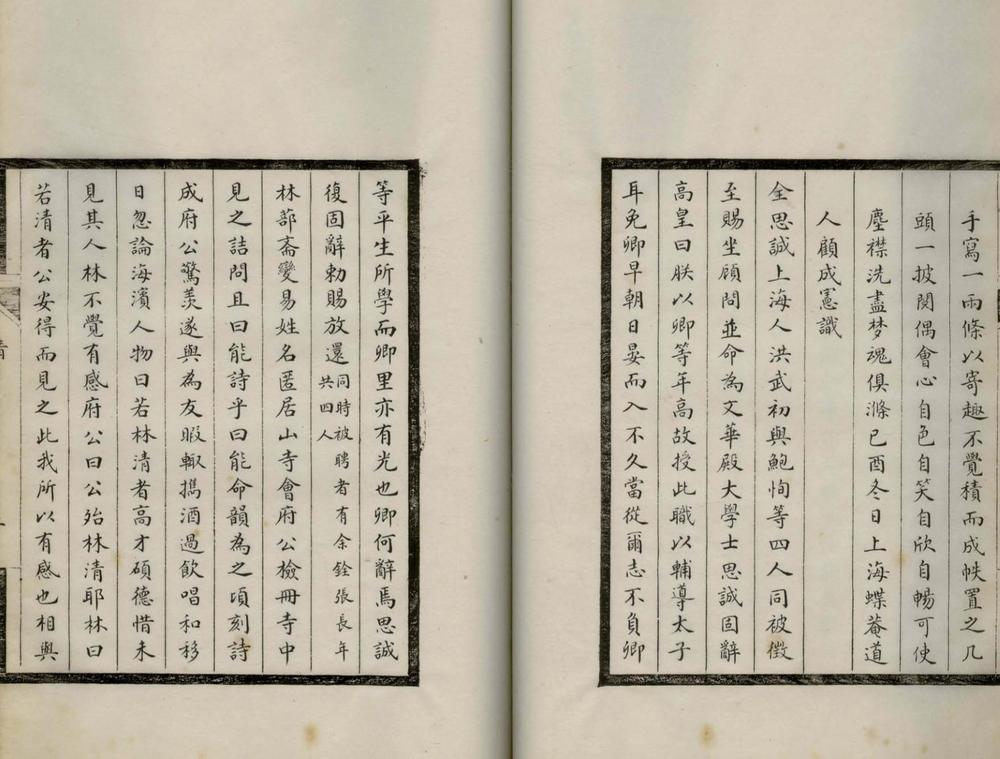 手寫一兩條以寄趣不覺積而成帙置之几
頭一披閱偶會心自色自笑自欣自暢可使
塵襟洗盡梦魂俱滌已酉冬日上海蝶菴道
人顧成憲識
全思誠上海人洪武初與鮑恂等四人同被徵
至賜坐顧問並命為文華殿大學士思誠固辭
高皇曰朕以卿等年高故授此職以輔導太子
耳免卿早朝日晏而入不久當從爾志不負卿
等平生所學而卿里亦有光也卿何辭焉思誠
復固辭勅賜放還同時被聘者有余銓張長年共四人
林蔀齋變易姓名匿居山寺會府公檢冊寺中
見之詰問且曰能詩乎曰能命韻為之頃刻詩
成府公驚羨遂與為友暇輙擕酒過飲唱和移
日忽論海濱人物曰若林清者高才碩德惜未
見其人林不覺有感府公曰公殆林清耶林曰
若清者公安得而見之此我所以有感也相與
清